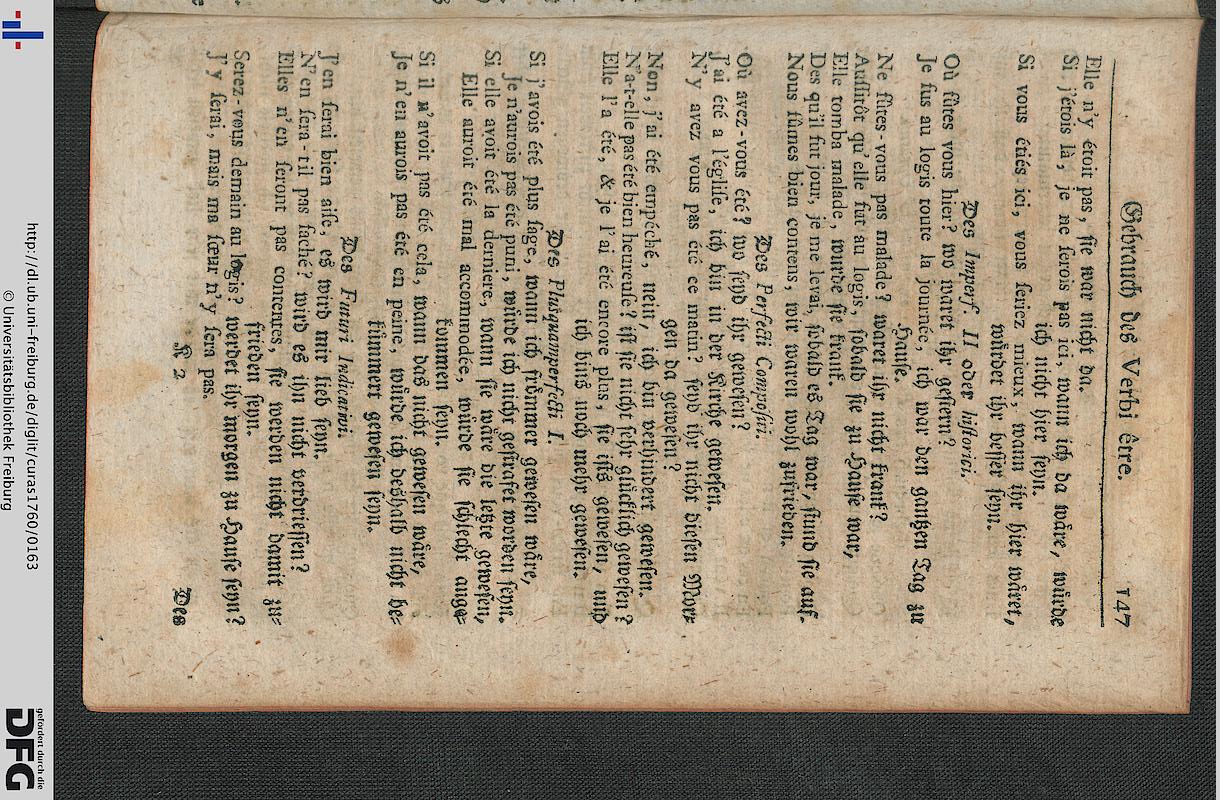 Gebrauch des Verbi être. 147
Elle n'y étoit pas, sie war nicht da.
Si j'étois là, je ne serois pas ici, wann ich da wåre, wůrde
ich nicht hier seyn.
Si vous étiés ici, vous seriez mieux, wann ihr hier wåret,
wůrdet ihr besser seyn.
Des Imperf. II oder historici.
Où fûtes vous hier? wo waret ihr gestern?
Je fus au logis toute la journée, ich war den gantzen Tag zu
Hause.
Ne fûtes-vous pas malade? waret ihr nicht krank?
Aussitôt qu'elle fut au logis, sobald sie zu Hause war,
Elle tomba malade, wurde sie krank.
Des qu'il fut jour, je me levai, sobald es Tag war, stund sie auf.
Nous fûmes bien contens, wir waren wohl zufrieden.
Des Perfecti Compositi.
Où avez-vous été? wo seyd ihr gewesen?
J'ai été a l'église, ich bin in der Kirche gewesen.
N'y avez vous pas été ce matin? seyd ihr nicht diesen Mor-
gen da gewesen?
Non, j'ai été empéché, nein, ich bin verhindert gewesen.
N'a-t-elle pas été bien heureuse? ist sie nicht sehr glůcklich gewesen?
Elle l'a été, & je l'ai été encore plus, sie ists gewesen, und
ich bins noch mehr gewesen.
Des Plusquamperfecti I.
Si j'avois été plus sage, wann ich frömmer gewesen wåre,
Je n'aurois pas été puni, wůrde ich nicht gestrafet worden seyn.
Si elle avoit été la derniere, wann sie wåre die letzte gewesen,
Elle auroit été mal accommodée, wůrde sie schlecht ange-
kommen seyn.
Si il n'avoit pas été cela, wann das nicht gewesen wåre,
Je n'en aurois pas été en peine, wůrde ich deshalb nicht be-
kůmmert gewesen seyn.
Des Futuri Indicativi.
J'en serai bien aise, es wird mir lieb seyn.
N'en sera-t-il pas faché? wird es ihn nicht verdriessen?
Elles n'en seront pas contentes, sie werden nicht damit zu-
frieden seyn.
Serez-vous demain au logis? werdet ihr morgen zu Hause seyn?
J'y serai, mais ma sœur n'y sera pas.
K 2 Des
http://dl.ub.uni-freiburg.de/diglit/curas1760/0163
© Universitätsbibliothek Freiburg
gefördert durch die
DFG